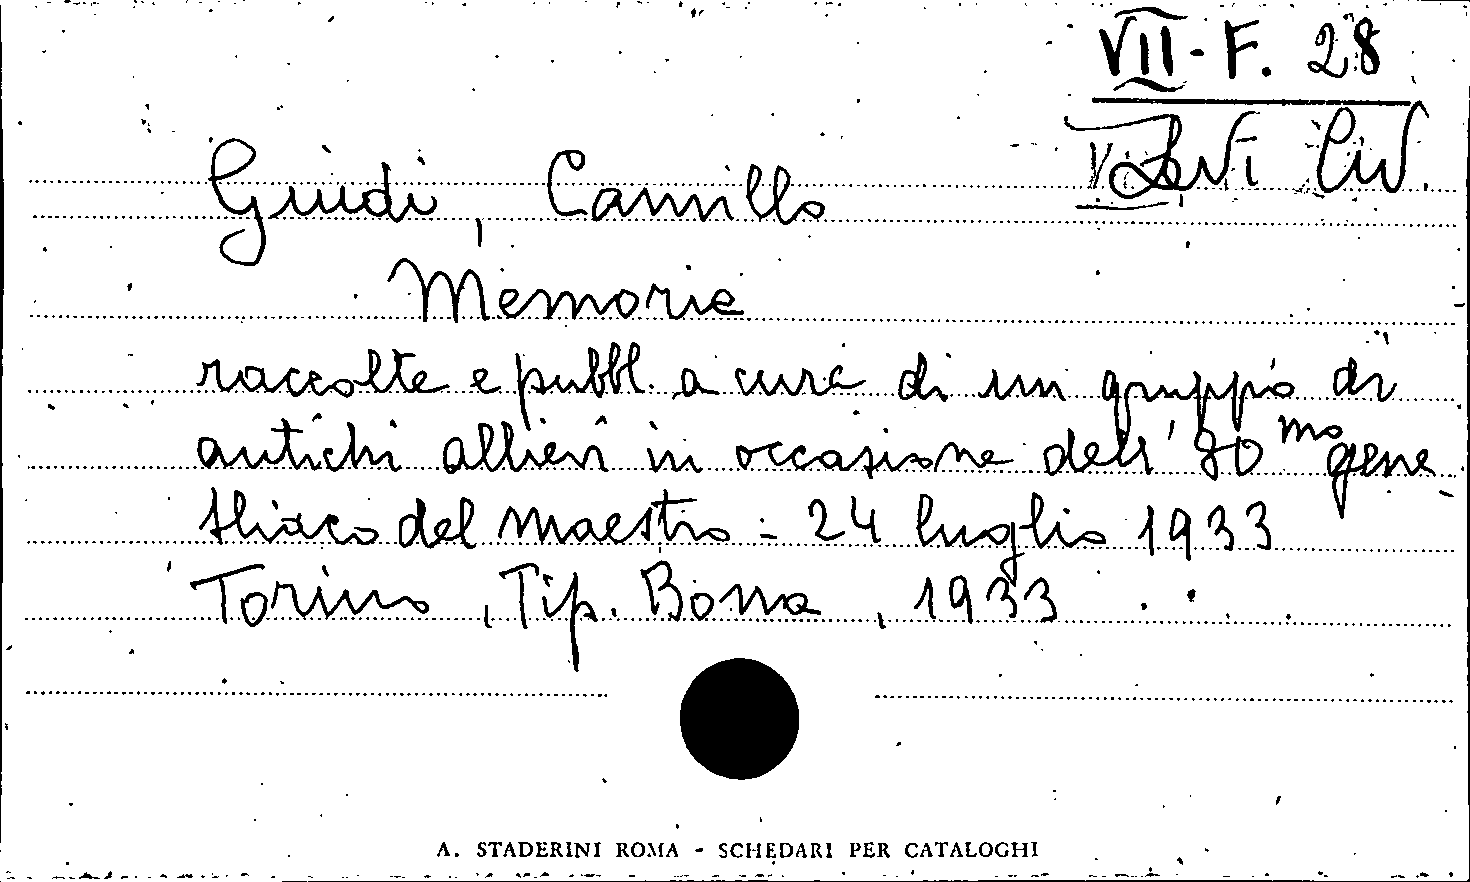 VII - F. 28
Levi Civ.
Guidi, Camillo
Memorie
raccolte e pubbl. a cura di un gruppo di
antichi allievi in occasione dell' 80mo gene
thliaco del maestro - 24 luglio 1933
Torino, Tip. Bona, 1933
A. STADERINI ROMA - SCHEDARI PER CATALOGHI